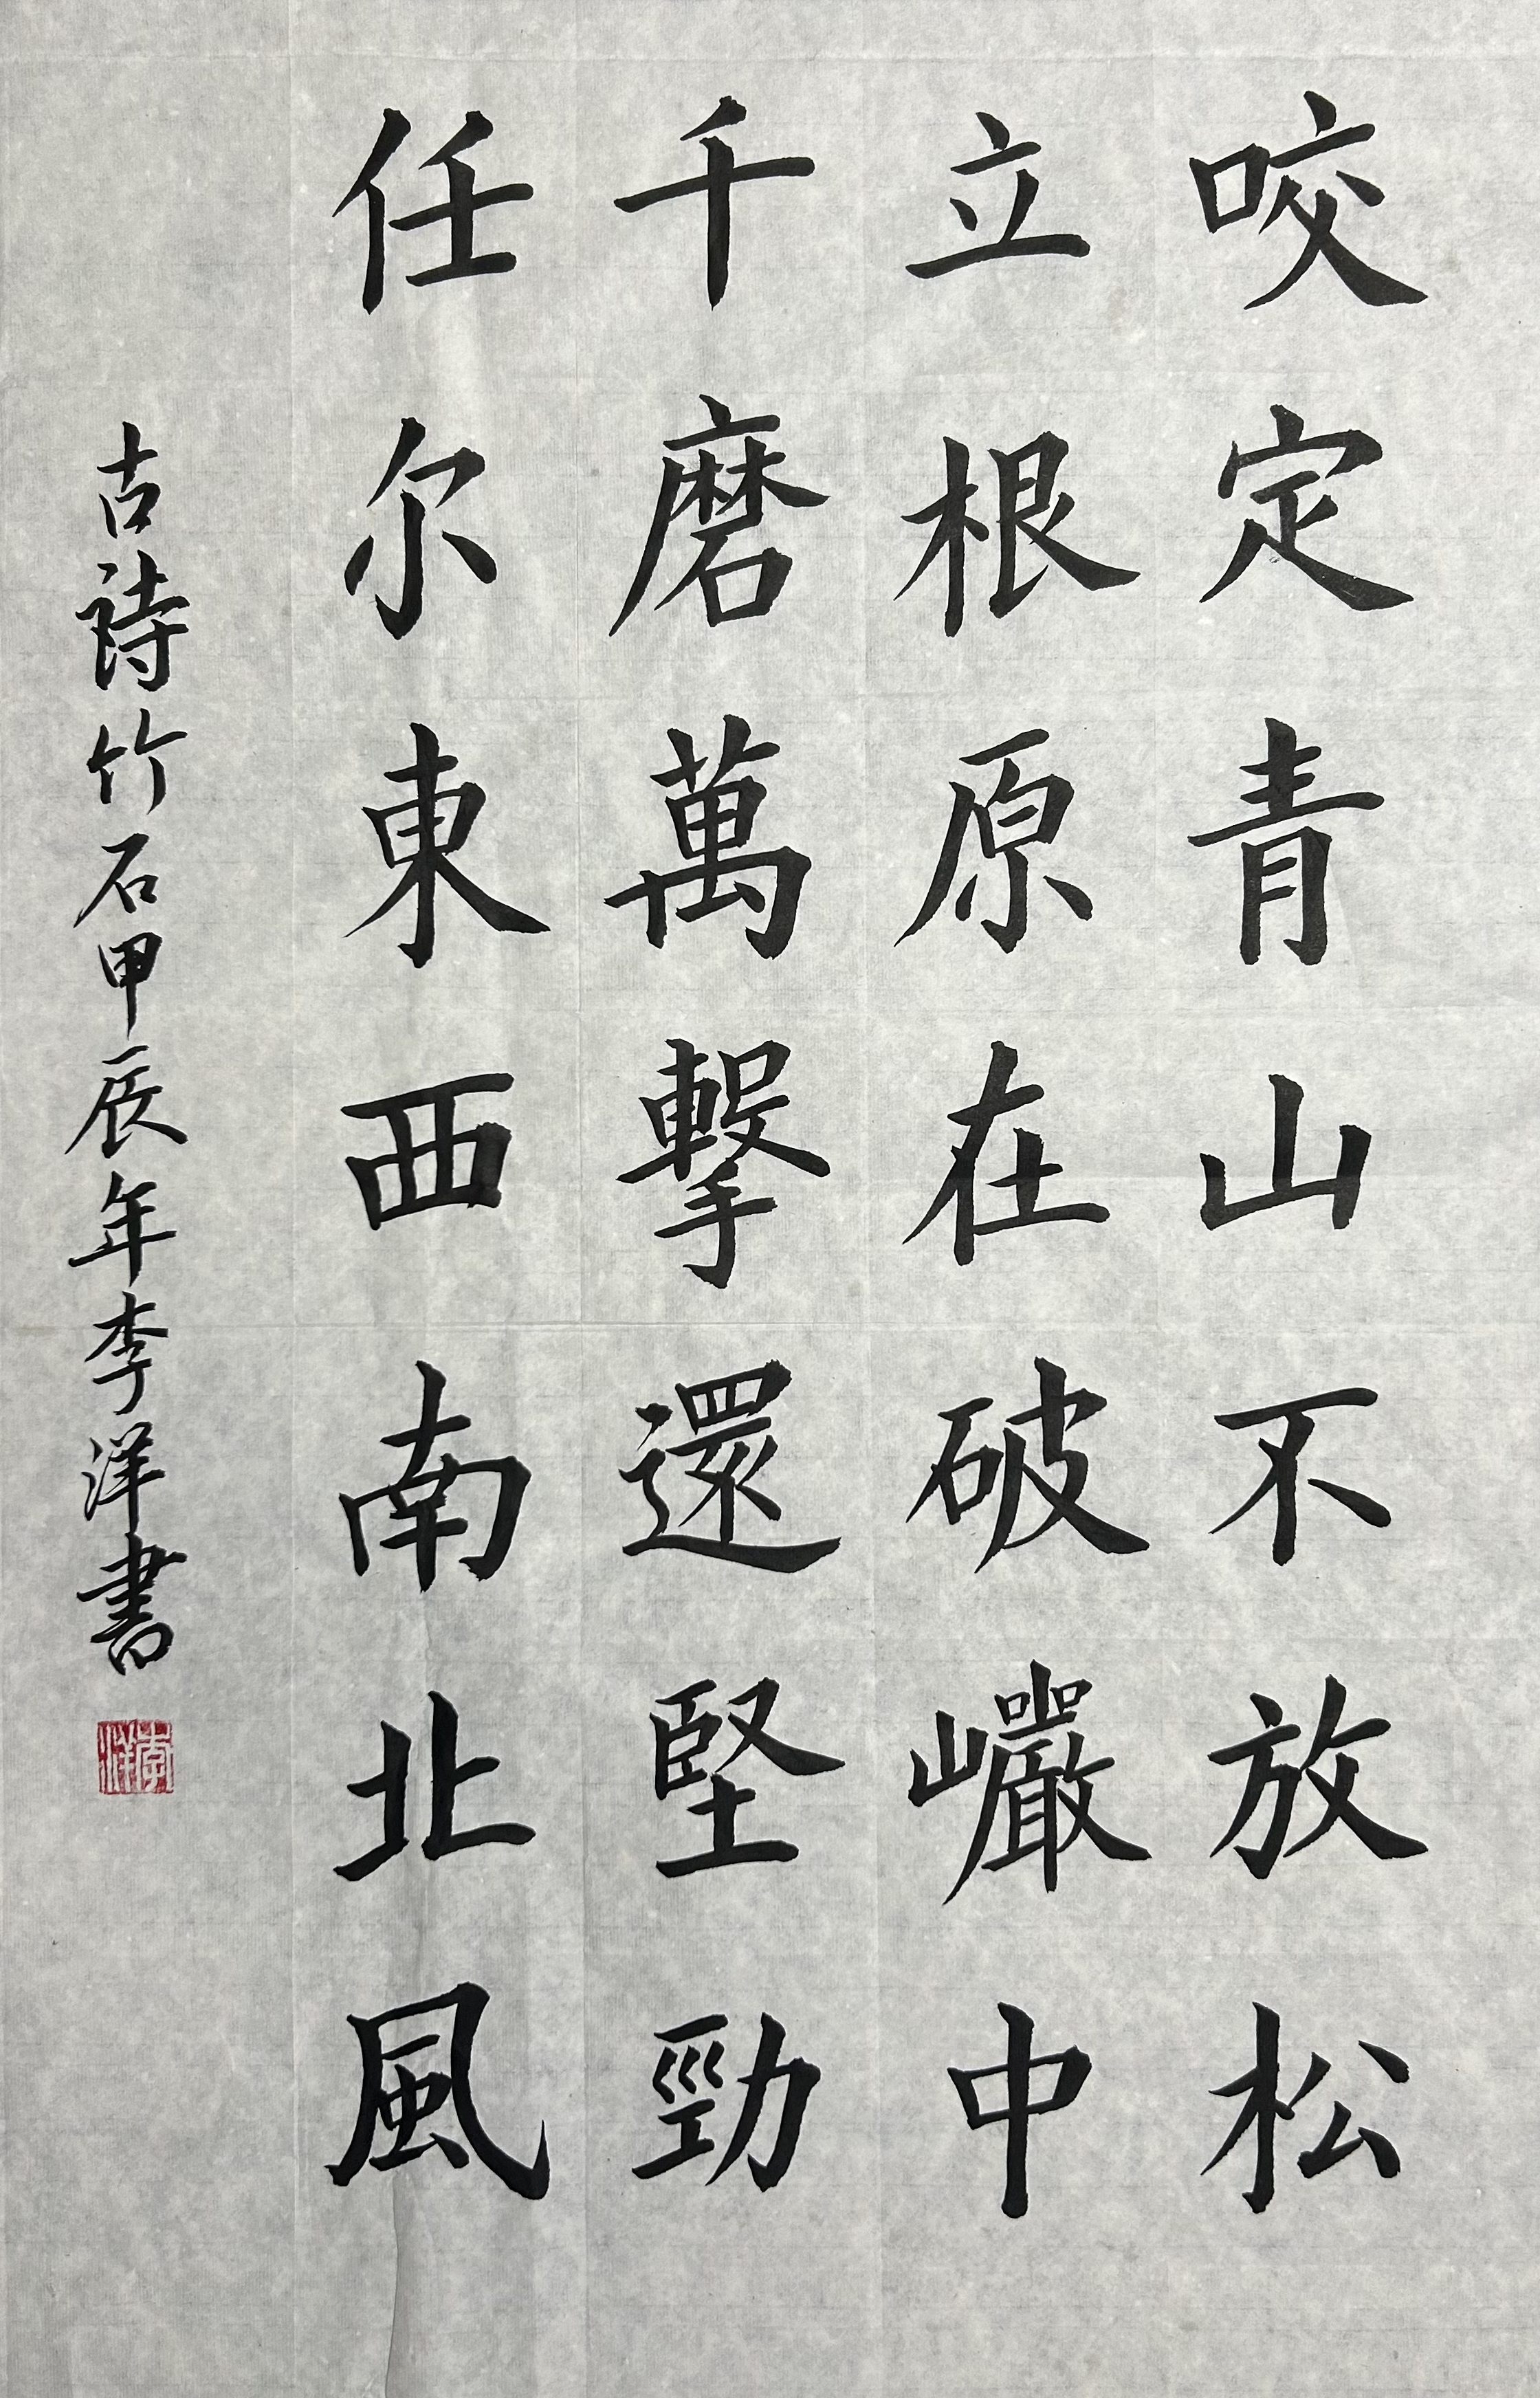 咬定青山不放松
立根原在破巖中
千磨萬擊還堅勁
任尔東西南北風
古詩竹石甲辰年李洋書
李洋